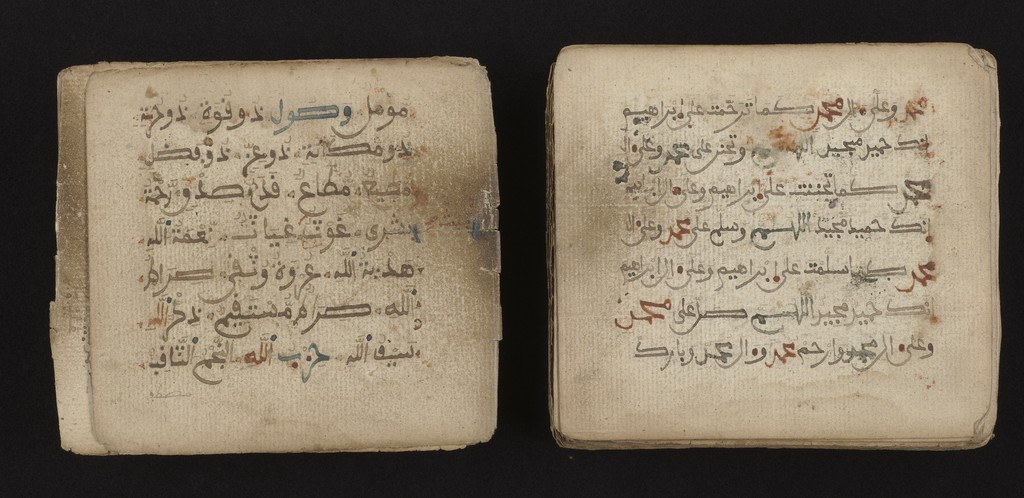 محمد وعلى ال محمد كما ترحمت على ابراهيم
انك حميد مجيد اللهم وتحنن على محمد وعلى ال
محمد كما تحننت على ابراهيم وعلى ال ابراهيم
انك حميد مجيد اللهم وسلم على محمد وعلى ال
محمد كما سلمت على ابراهيم وعلى ال ابراهيم
انك حميد مجيد اللهم صل على محمد
وعلى ال محمد وارحم محمد وال محمد وبارك
مومل وصول ذو قوة ذو حرمة
ذو مكانة ذو عز ذو فضل
مطيع مطاع قدم صدق رحمة
بشرى غوث غياث نعمة الله
هدية الله عروة وثقى صراط
الله صراط مستقيم ذكر الله
سيف الله حزب الله النجم الثاقب